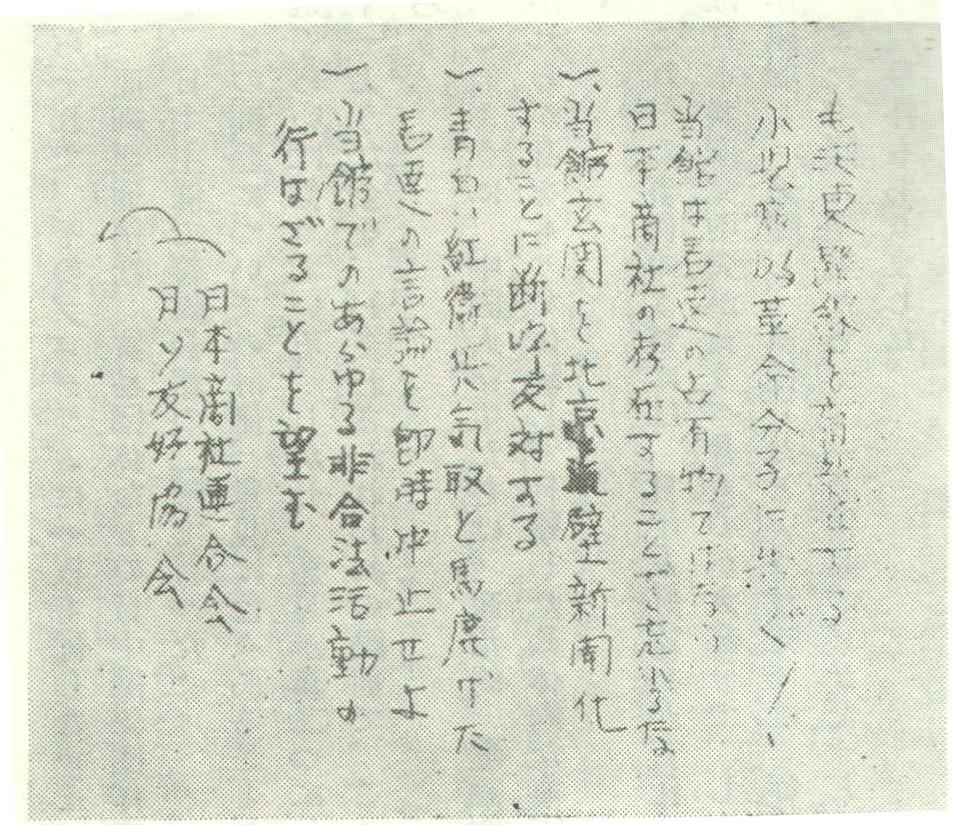 毛沢東を商売にする
小児病的革命分子に告ぐ！
当館は君達の占有物ではない
日本商社の存在することを忘れるな
一、当館玄関を北京壁新聞化
することに断乎反対する
一、青白い紅衛兵気取と馬鹿げた
君達の言論を即時冲止せよ
一、当館でのあらゆる非合法活動の
行はざることを望む
日本商社連合会
日ソ友好協会